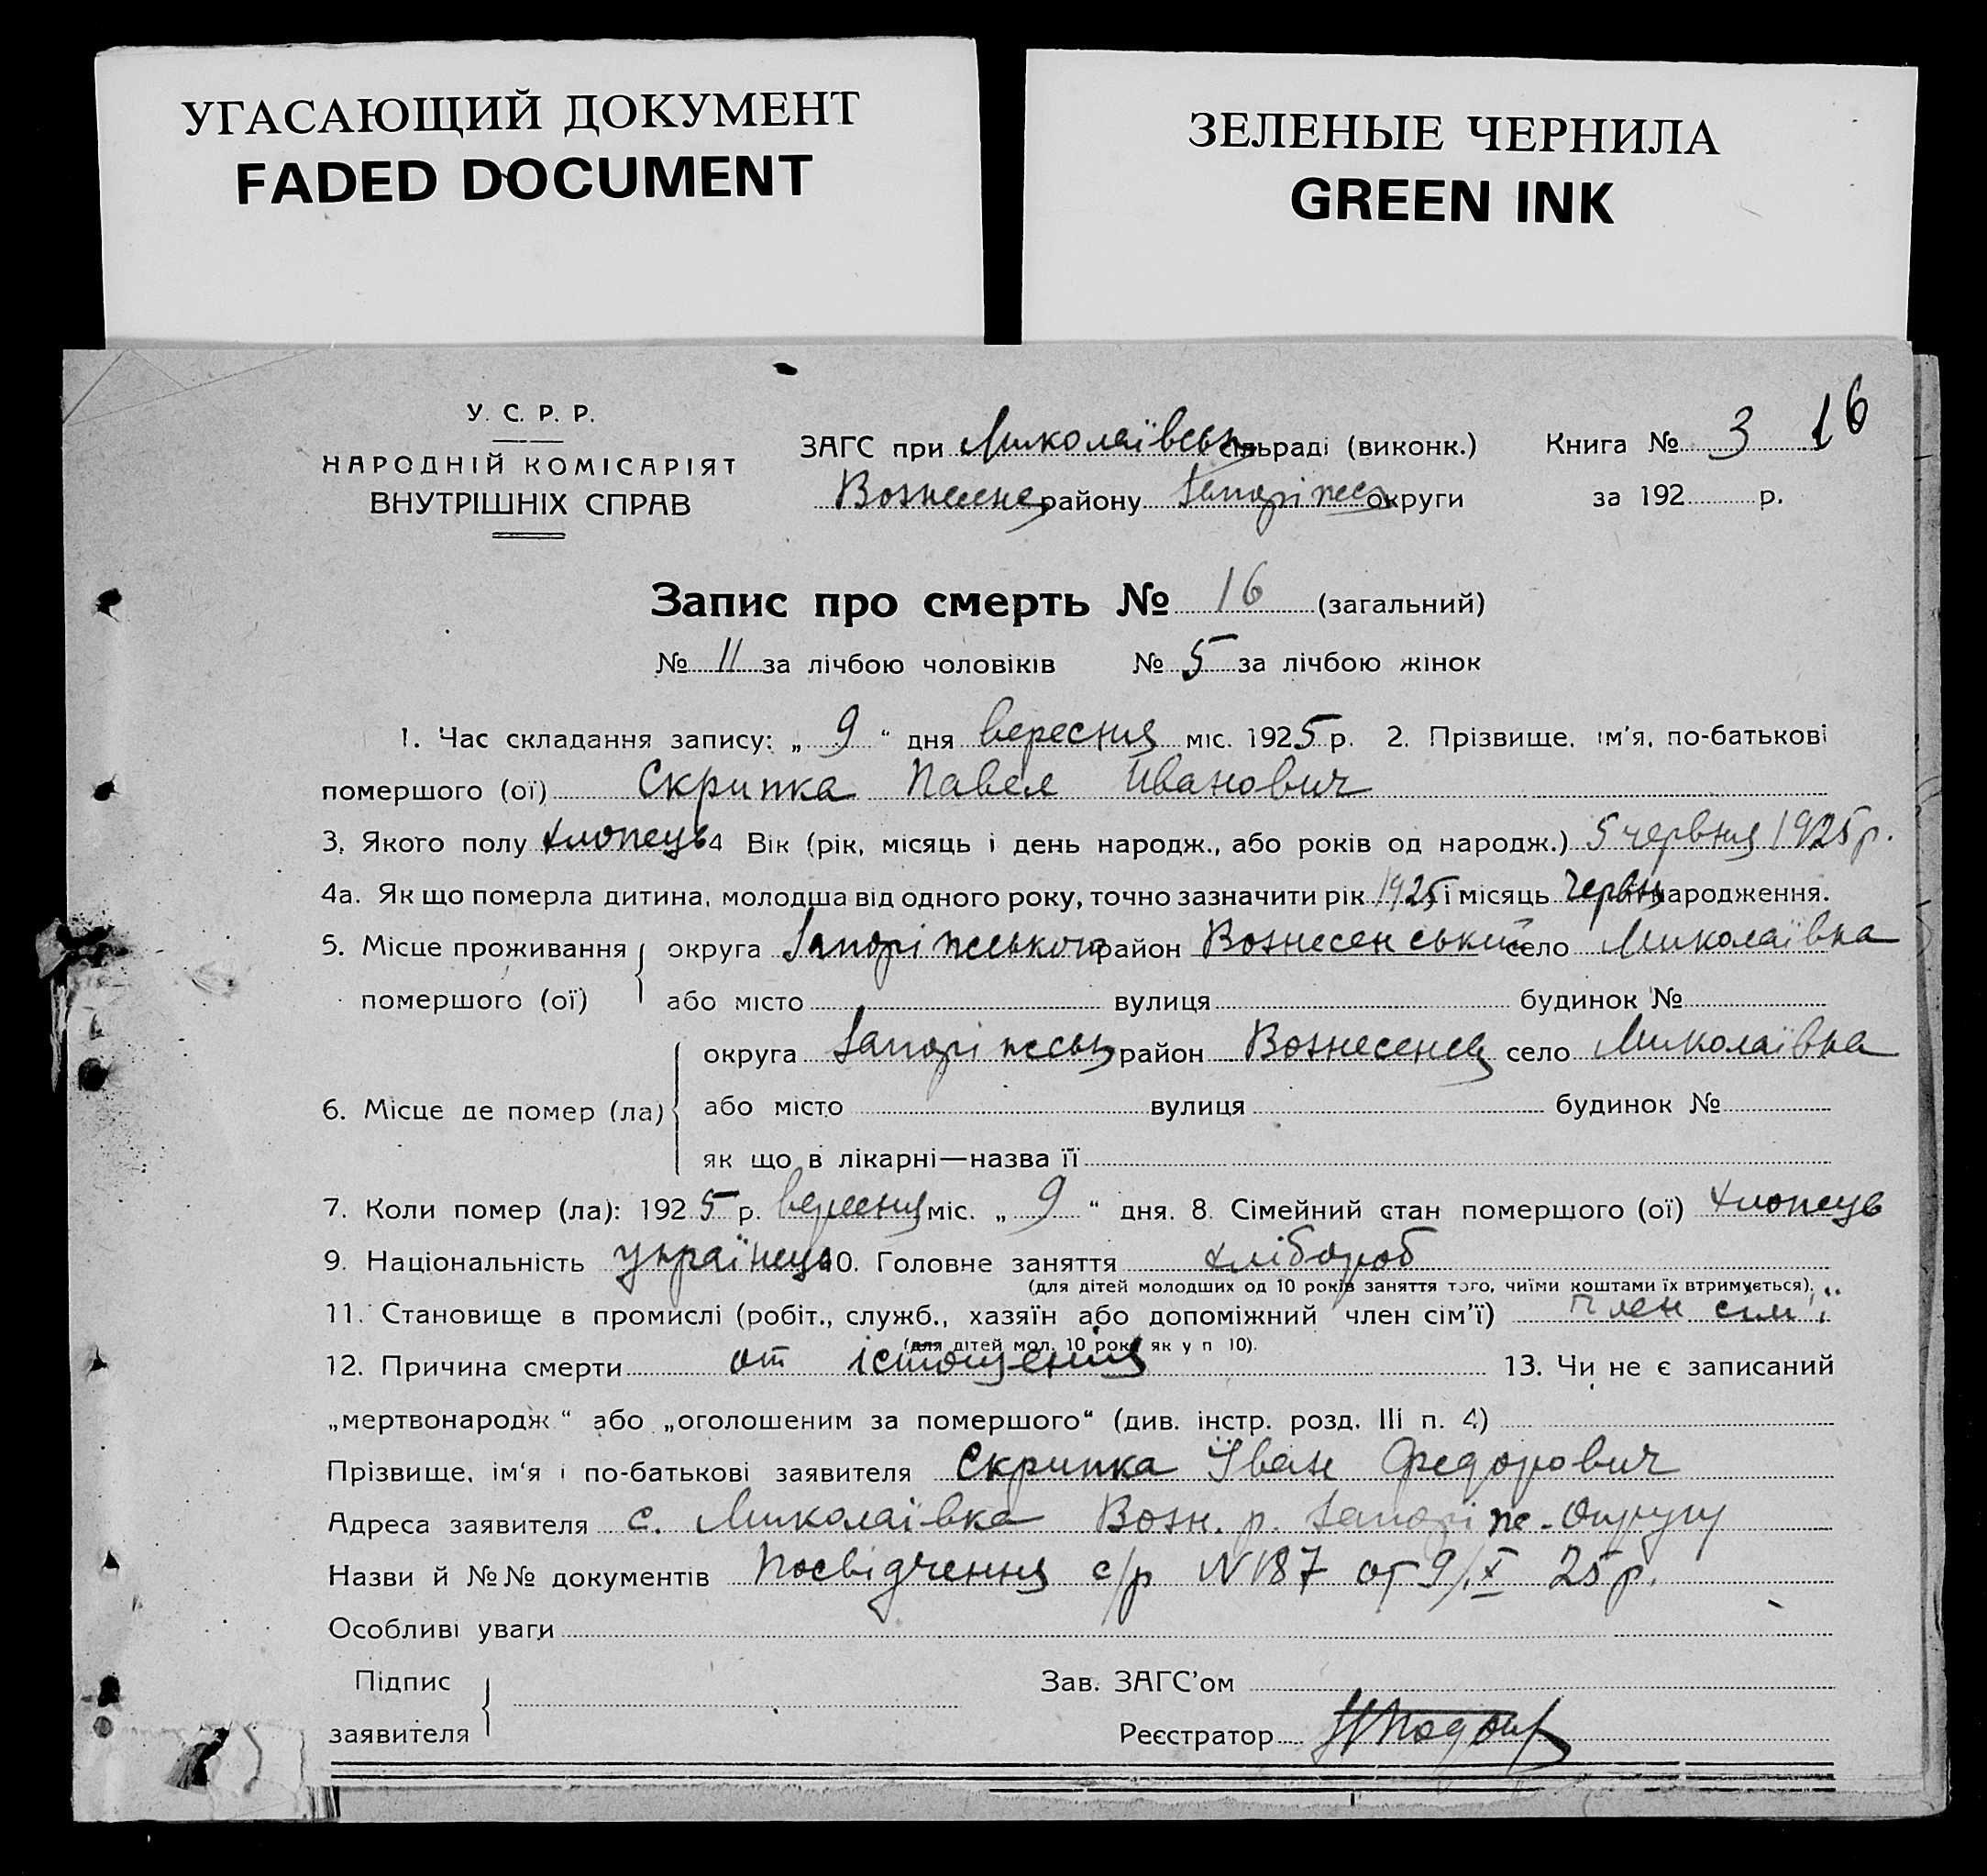 УГАСАЮЩИЙ ДОКУМЕНТ
FADED DOCUMENT
ЗЕЛЕНЫЕ ЧЕРНИЛА
GREEN INK
У. С. Р. Р.
НАРОДНІЙ КОМІСАРІЯТ
ВНУТРІШНІХ СПРАВ
ЗАГС при Миколаївськ сільраді (виконк.)
Вознесенс району Запоріжс округи
Книга № 3 16
за 192 р.
Запис про смерть № 16 (загальний)
№ 11 за лічбою чоловіків № 5 за лічбою жінок
1. Час складання запису: „ 9 “ дня вересня міс. 1925 р. 2. Прізвище, ім'я, по-батькові
помершого (ої) Скрипка Павел Иванович
3. Якого полу хлопець 4 Вік (рік, місяць і день народж., або років од народж.) 5 червня 1925 р.
4а. Як що померла дитина, молодша від одного року, точно зазначити рік 1925 і місяць червн народження.
5. Місце проживання округа Запоріжського район Вознесенський село Миколаївка
помершого (ої) або місто вулиця будинок №
округа Запоріжськ район Вознесенск село Миколаївка
6. Місце де помер (ла) або місто вулиця будинок №
як що в лікарні—назва її
7. Коли помер (ла): 1925 р. вересня міс. „ 9 “ дня. 8. Сімейний стан помершого (ої) хлопець
9. Національність українець 10. Головне заняття хлібороб
(для дітей молодших од 10 років заняття того, чиїми коштами їх втримується).
11. Становище в промислі (робіт., служб., хазяїн або допоміжний член сім'ї) член сім'ї
(для дітей мол. 10 рок. як у п 10).
12. Причина смерти от істощения 13. Чи не є записаний
„мертвонародж.“ або „оголошеним за помершого“ (див. інстр. розд. III п. 4)
Прізвище, ім'я і по-батькові заявителя Скрипка Їван Федорович
Адреса заявителя с. Миколаївка Возн. р. Запоріж-Округу
Назви й №№ документів Посвідчення с/р N 187 от 9/X 25 р.
Особливі уваги
Підпис
заявителя
Зав. ЗАГС'ом
Реєстратор